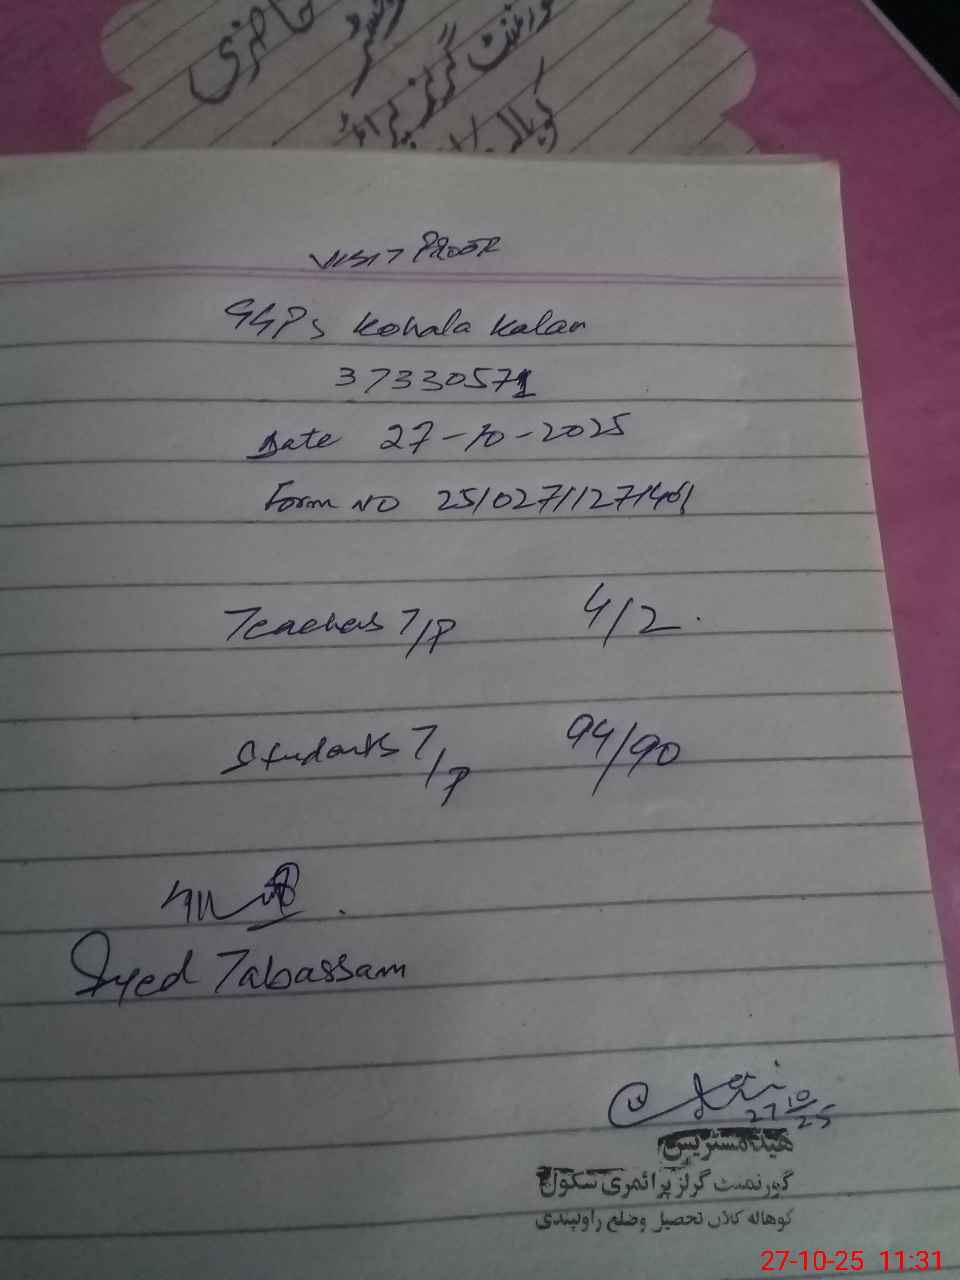 حاضری
رجسٹر
گورنمنٹ گرلز پرائمری
کوہالہ
VISIT PROOF
GGPS Kohala Kalan
37330571
Date 27-10-2025
Form NO 25102711271461
Teachers T/P 4/2.
Students T/P 94/90
Syed Tabassam
27 10/25
ھیڈ مسٹریس
گورنمنٹ گرلز پرائمری سکول
کوھالہ کلاں تحصیل وضلع راولپنڈی
27-10-25 11:31